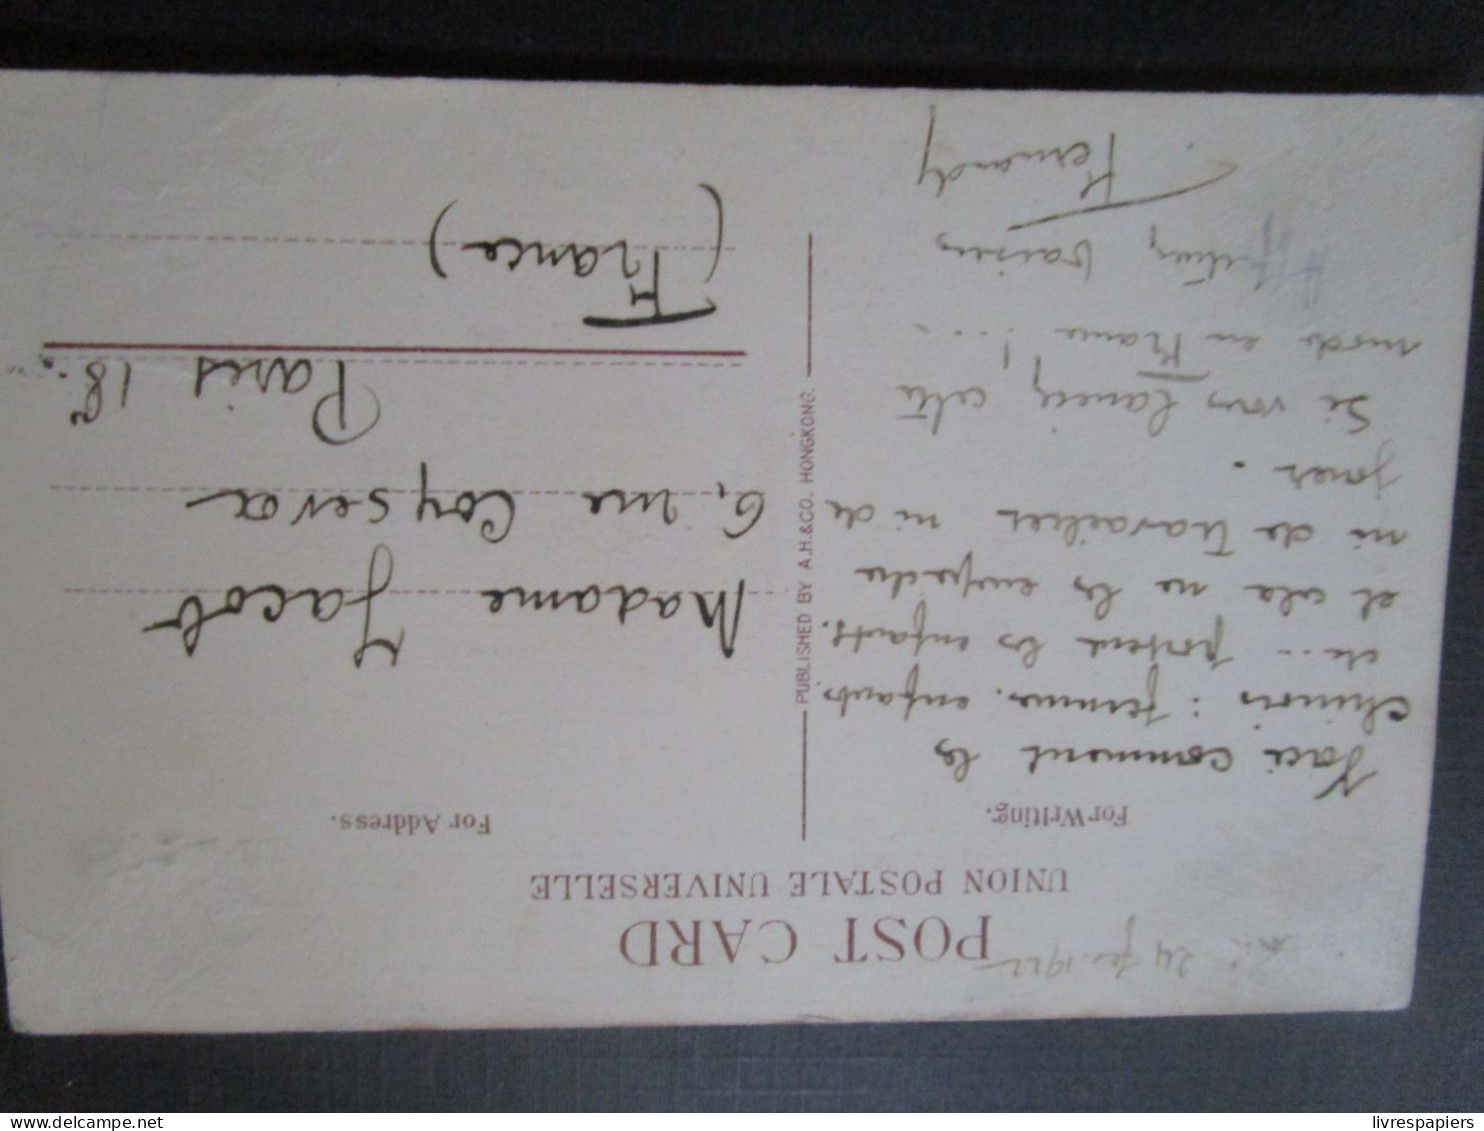 24 1922
POST CARD
UNION POSTALE UNIVERSELLE
For Writing.
For Address.
Voici comment les
chinois : femmes. enfants.
etc... portent les enfants.
et cela ne les empêche
ni de travailler ni de
jouer.
Si vous lanciez cette
mode en France !...
Affectueux baisers
Fernandy
PUBLISHED BY A.H.&CO. HONGKONG.
Madame Jacob
6, rue Coysevox
Paris 18e.
(France)
livrespapiers